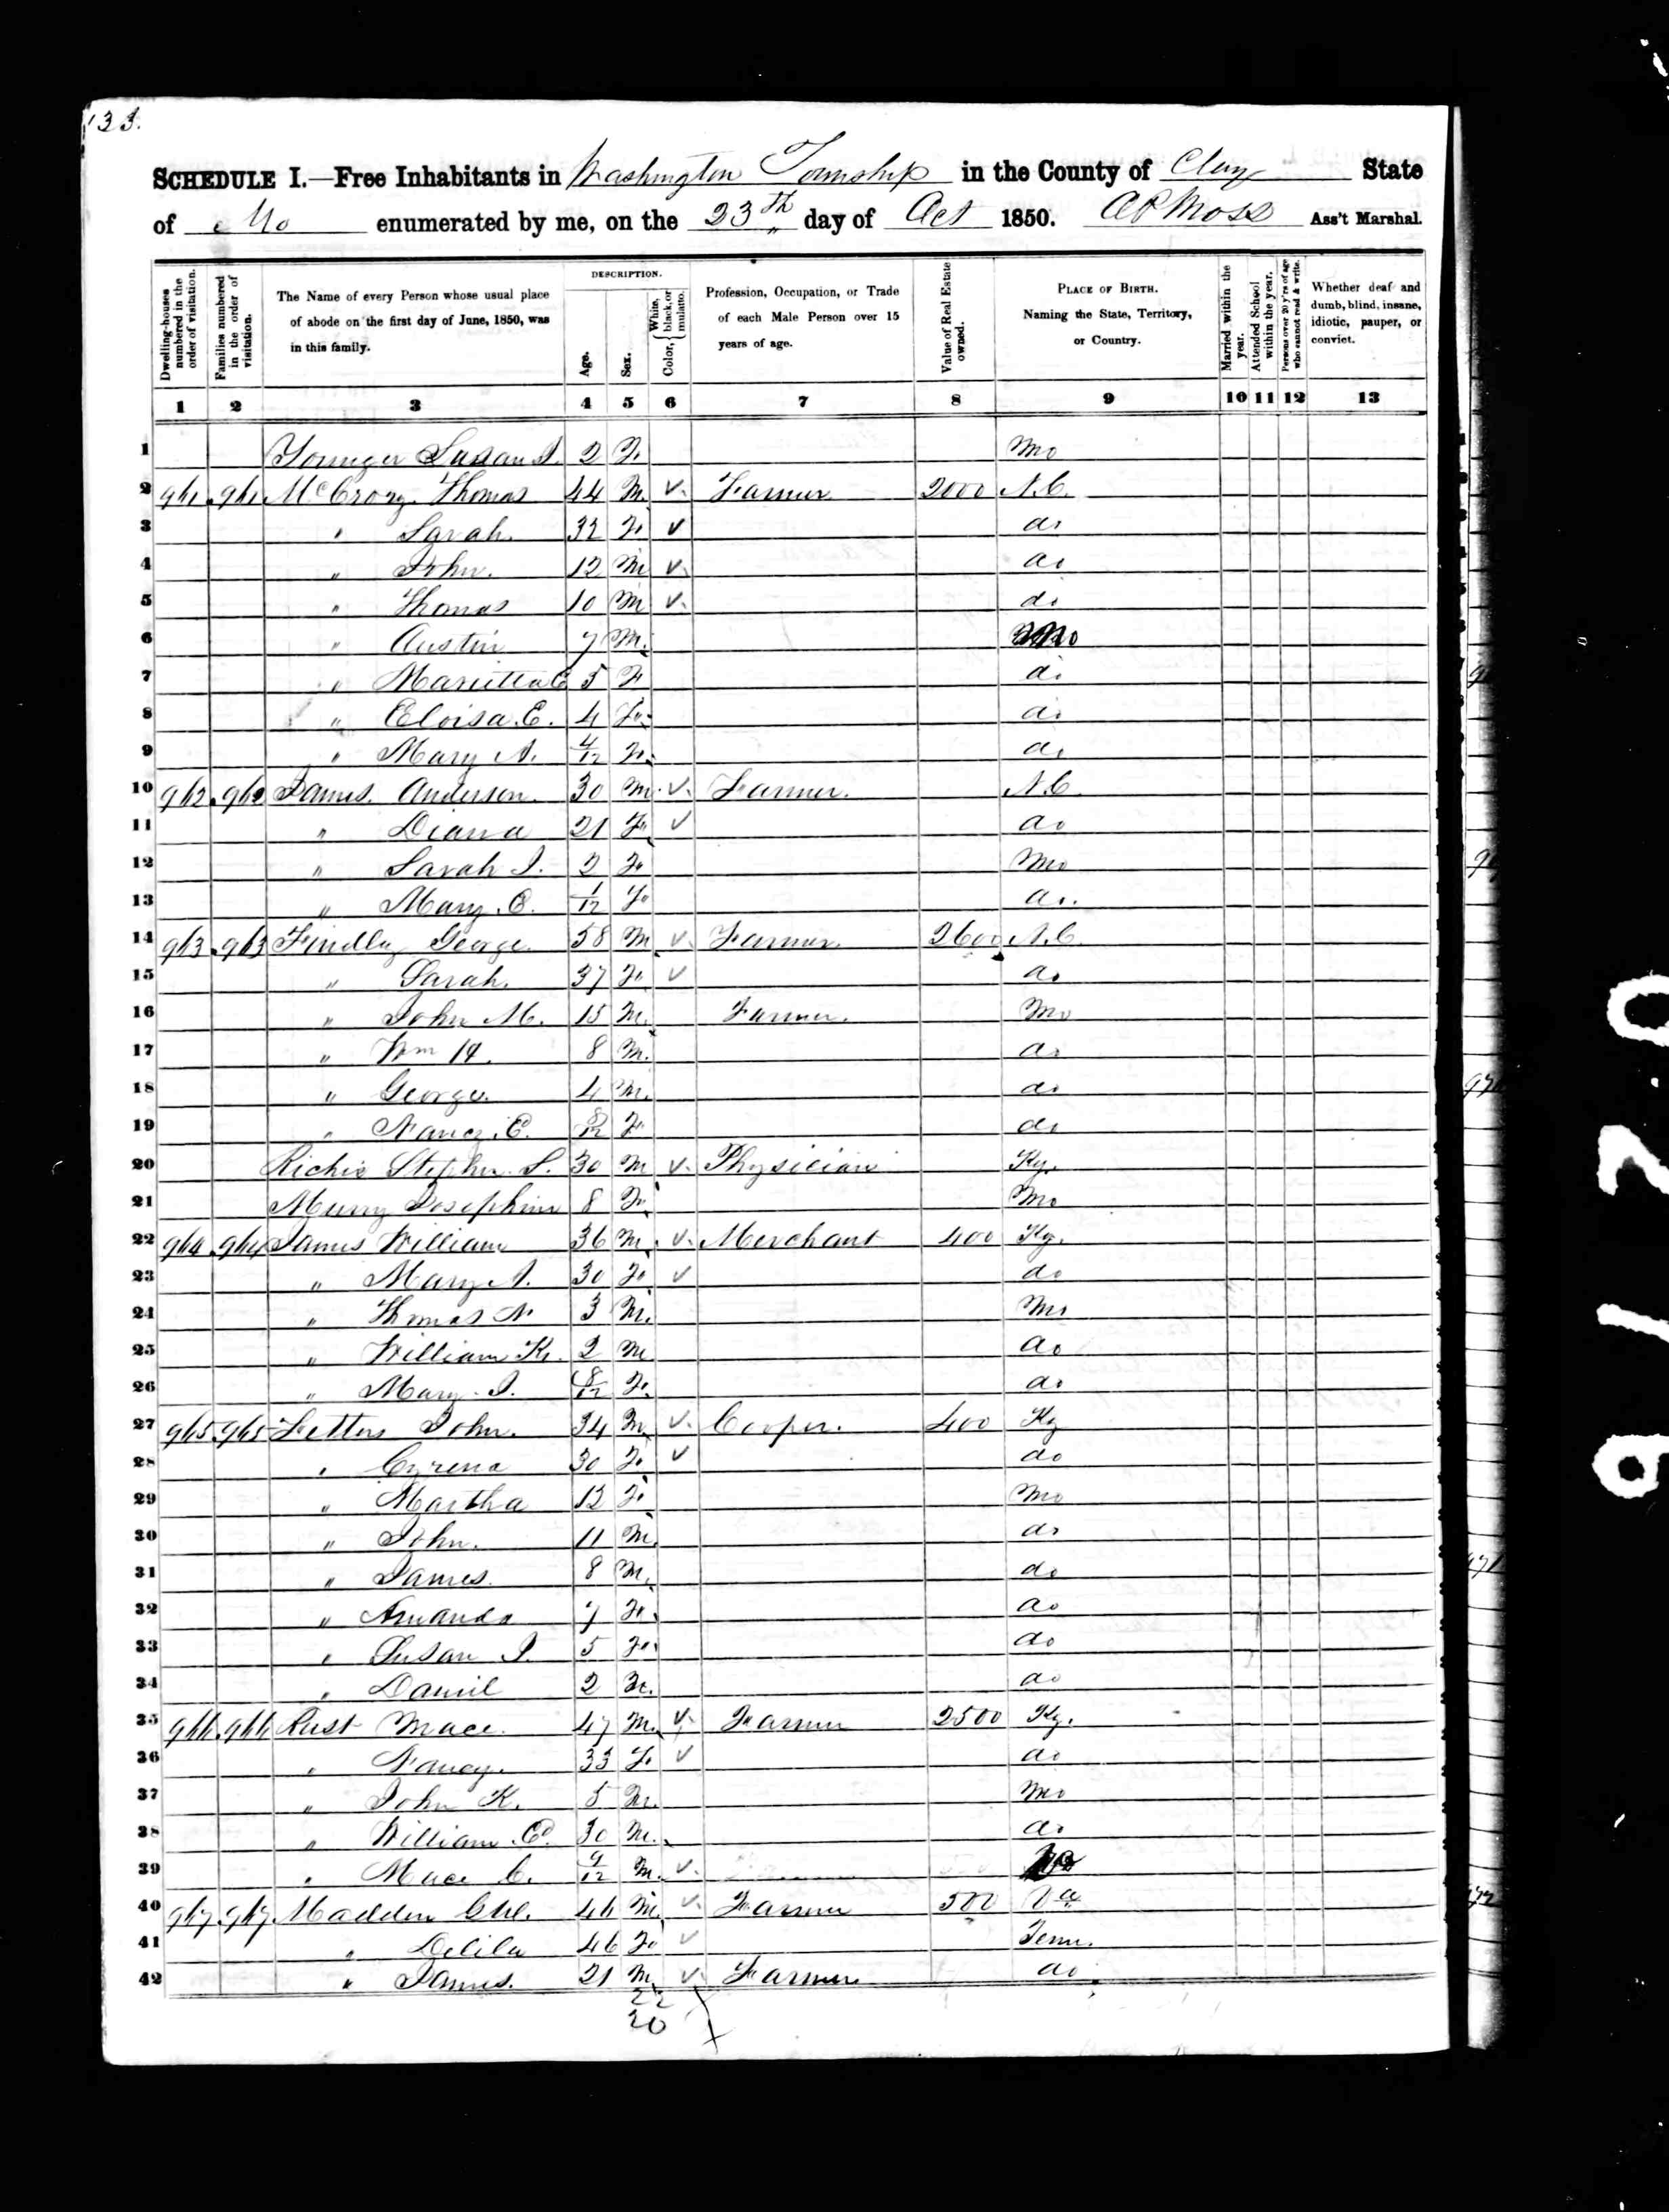 133.
SCHEDULE I.—Free Inhabitants in Washington Township in the County of Clay State
of Mo enumerated by me, on the 23th day of Oct 1850. A P Moss Ass't Marshal.
Dwelling-houses numbered in the order of visitation.
Families numbered in the order of visitation.
The Name of every Person whose usual place of abode on the first day of June, 1850, was in this family.
DESCRIPTION.
Age.
Sex.
Color, { White, black, or mulatto.
Profession, Occupation, or Trade of each Male Person over 15 years of age.
Value of Real Estate owned.
PLACE OF BIRTH.
Naming the State, Territory, or Country.
Married within the year.
Attended School within the year.
Persons over 20 y'rs of age who cannot read & write.
Whether deaf and dumb, blind, insane, idiotic, pauper, or convict.
1 2 3 4 5 6 7 8 9 10 11 12 13
1 Younger Susan J. 2 F. Mo
2 961 961 McCrory Thomas 44 M. v. Farmer 2000 N.C.
3 " Sarah. 32 F. v do
4 " John. 12 M v. do
5 " Thomas 10 M v. do
6 " Austin 7 M. Mo
7 " Marietta C 5 F do
8 " Eloisa. E. 4 F. do
9 " Mary A. 4/12 F. do
10 962 962 James. Anderson. 30 M. v. Farmer. N.C.
11 " Diana 21 F. v do
12 " Sarah J. 2 F. Mo
13 " Mary. E. 1/12 F. do.
14 963 963 Findley George. 58 M v. Farmer. 2600 N.C.
15 " Sarah. 37 F. v do
16 " John M. 15 M. Farmer. Mo
17 " Wm H. 8 M. do
18 " George. 4 M. do
19 " Nancy. E. 8/12 F. do
20 Richie Stephen. S. 30 M v. Physician Ky.
21 Murry Josephine 8 F. Mo
22 964 964 James William 36 M. v. Merchant 400 Ky.
23 " Mary A. 30 F. v do
24 " Thomas N. 3 M. Mo
25 " William K. 2 M do
26 " Mary. J. 8/12 F. do
27 965 965 Fetters John. 34 M. v. Cooper. 400 Ky
28 " Cyrena 30 F. v do
29 " Martha 12 F. Mo
30 " John. 11 M. do
31 " James. 8 M. do
32 " Amanda 7 F. do
33 " Susan J. 5 F. do
34 " Daniel 2 M. do
35 966 966 Rust Mace. 47 M. v. Farmer 2500 Ky.
36 " Nancy. 33 F. v do
37 " John K. 5 M. Mo
38 " William. 30 M. do
39 " Mace C. 9/12 M. v.
40 967 967 Madden 46 M. v Farmer 500 Va
41 " Delila 46 F. v Tenn.
42 " James. 21 M v. Farmer do
22
20
9170